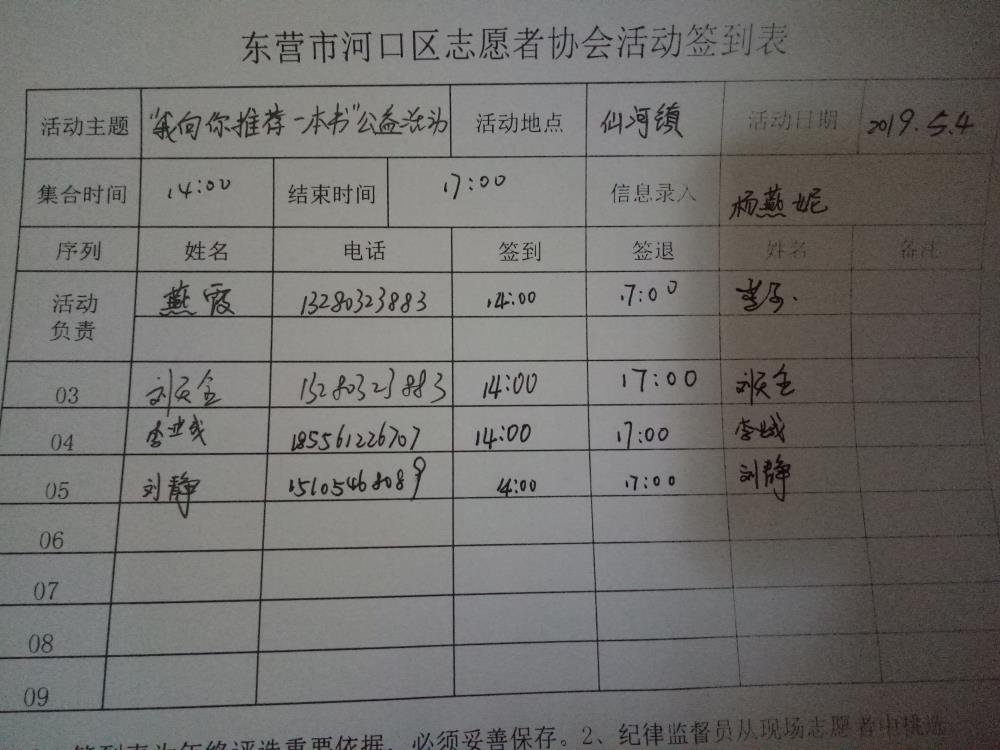 东营市河口区志愿者协会活动签到表
活动主题 "我向你推荐一本书"公益活动 活动地点 仙河镇 活动日期 2019.5.4
集合时间 14:00 结束时间 17:00 信息录入 杨燕妮
序列 姓名 电话 签到 签退 姓名 备注
活动负责 燕霞 13280323883 14:00 17:00
03 刘天全 13280323883 14:00 17:00 刘天全
04 李业成 185561226707 14:00 17:00 李成
05 刘静 15105468089 14:00 17:00 刘静
06
07
08
09
签到表为年终评选重要依据，必须妥善保存。2、纪律监督员从现场志愿者中挑选